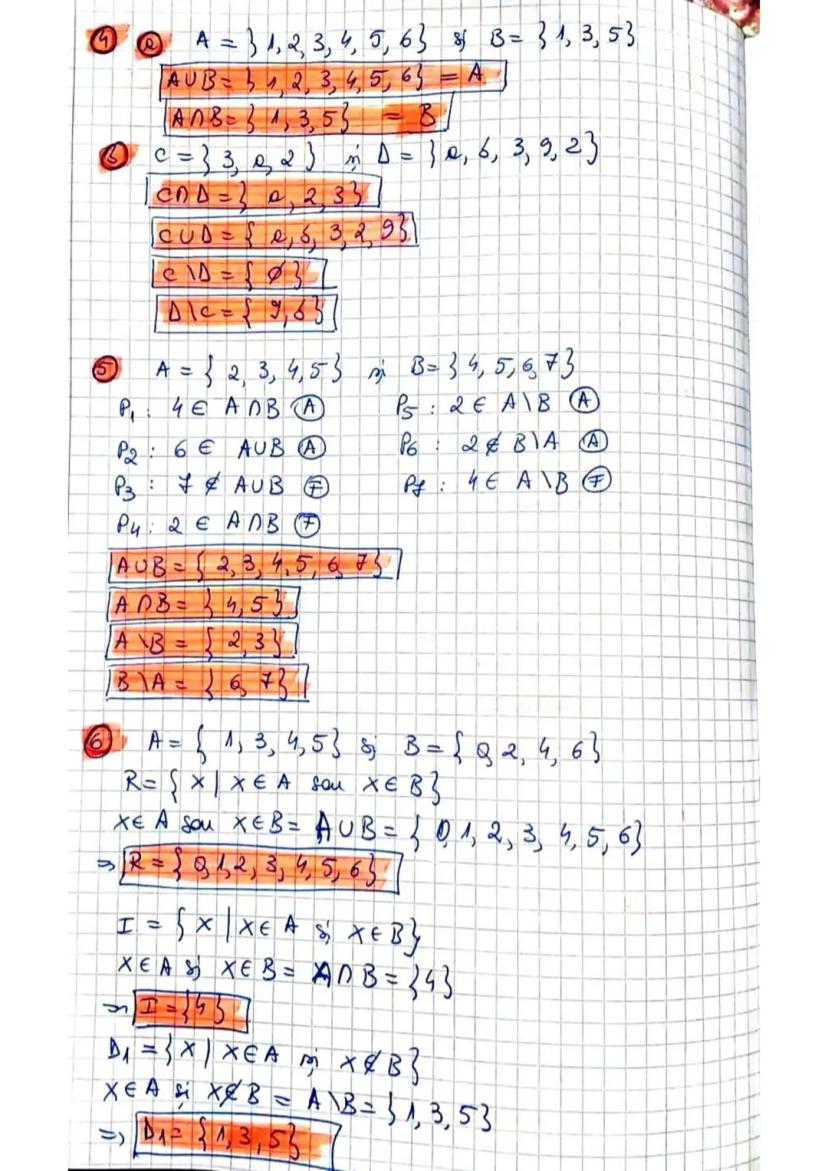 4 a A = {1, 2, 3, 4, 5, 6} și B = {1, 3, 5}
A∪B = {1, 2, 3, 4, 5, 6} = A
A∩B = {1, 3, 5} = B
b C = {3, a, 2} și D = {a, b, 3, 9, 2}
C∩D = {a, 2, 3}
C∪D = {a, b, 3, 2, 9}
C\D = {∅}
D\C = {9, b}
5 A = {2, 3, 4, 5} și B = {4, 5, 6, 7}
P1 : 4 ∈ A∩B A P5 : 2 ∈ A\B A
P2 : 6 ∈ A∪B A P6 : 2 ∉ B\A A
P3 : 7 ∉ A∪B F P7 : 4 ∈ A\B F
P4 : 2 ∈ A∩B F
A∪B = {2, 3, 4, 5, 6, 7}
A∩B = {4, 5}
A\B = {2, 3}
B\A = {6, 7}
6 A = {1, 3, 4, 5} și B = {0, 2, 4, 6}
R = {x | x ∈ A sau x ∈ B}
x ∈ A sau x ∈ B = A∪B = {0, 1, 2, 3, 4, 5, 6}
⇒ R = {0, 1, 2, 3, 4, 5, 6}
I = {x | x ∈ A și x ∈ B}
x ∈ A și x ∈ B = A∩B = {4}
⇒ I = {4}
D1 = {x | x ∈ A și x ∉ B}
x ∈ A și x ∉ B = A\B = {1, 3, 5}
⇒ D1 = {1, 3, 5}